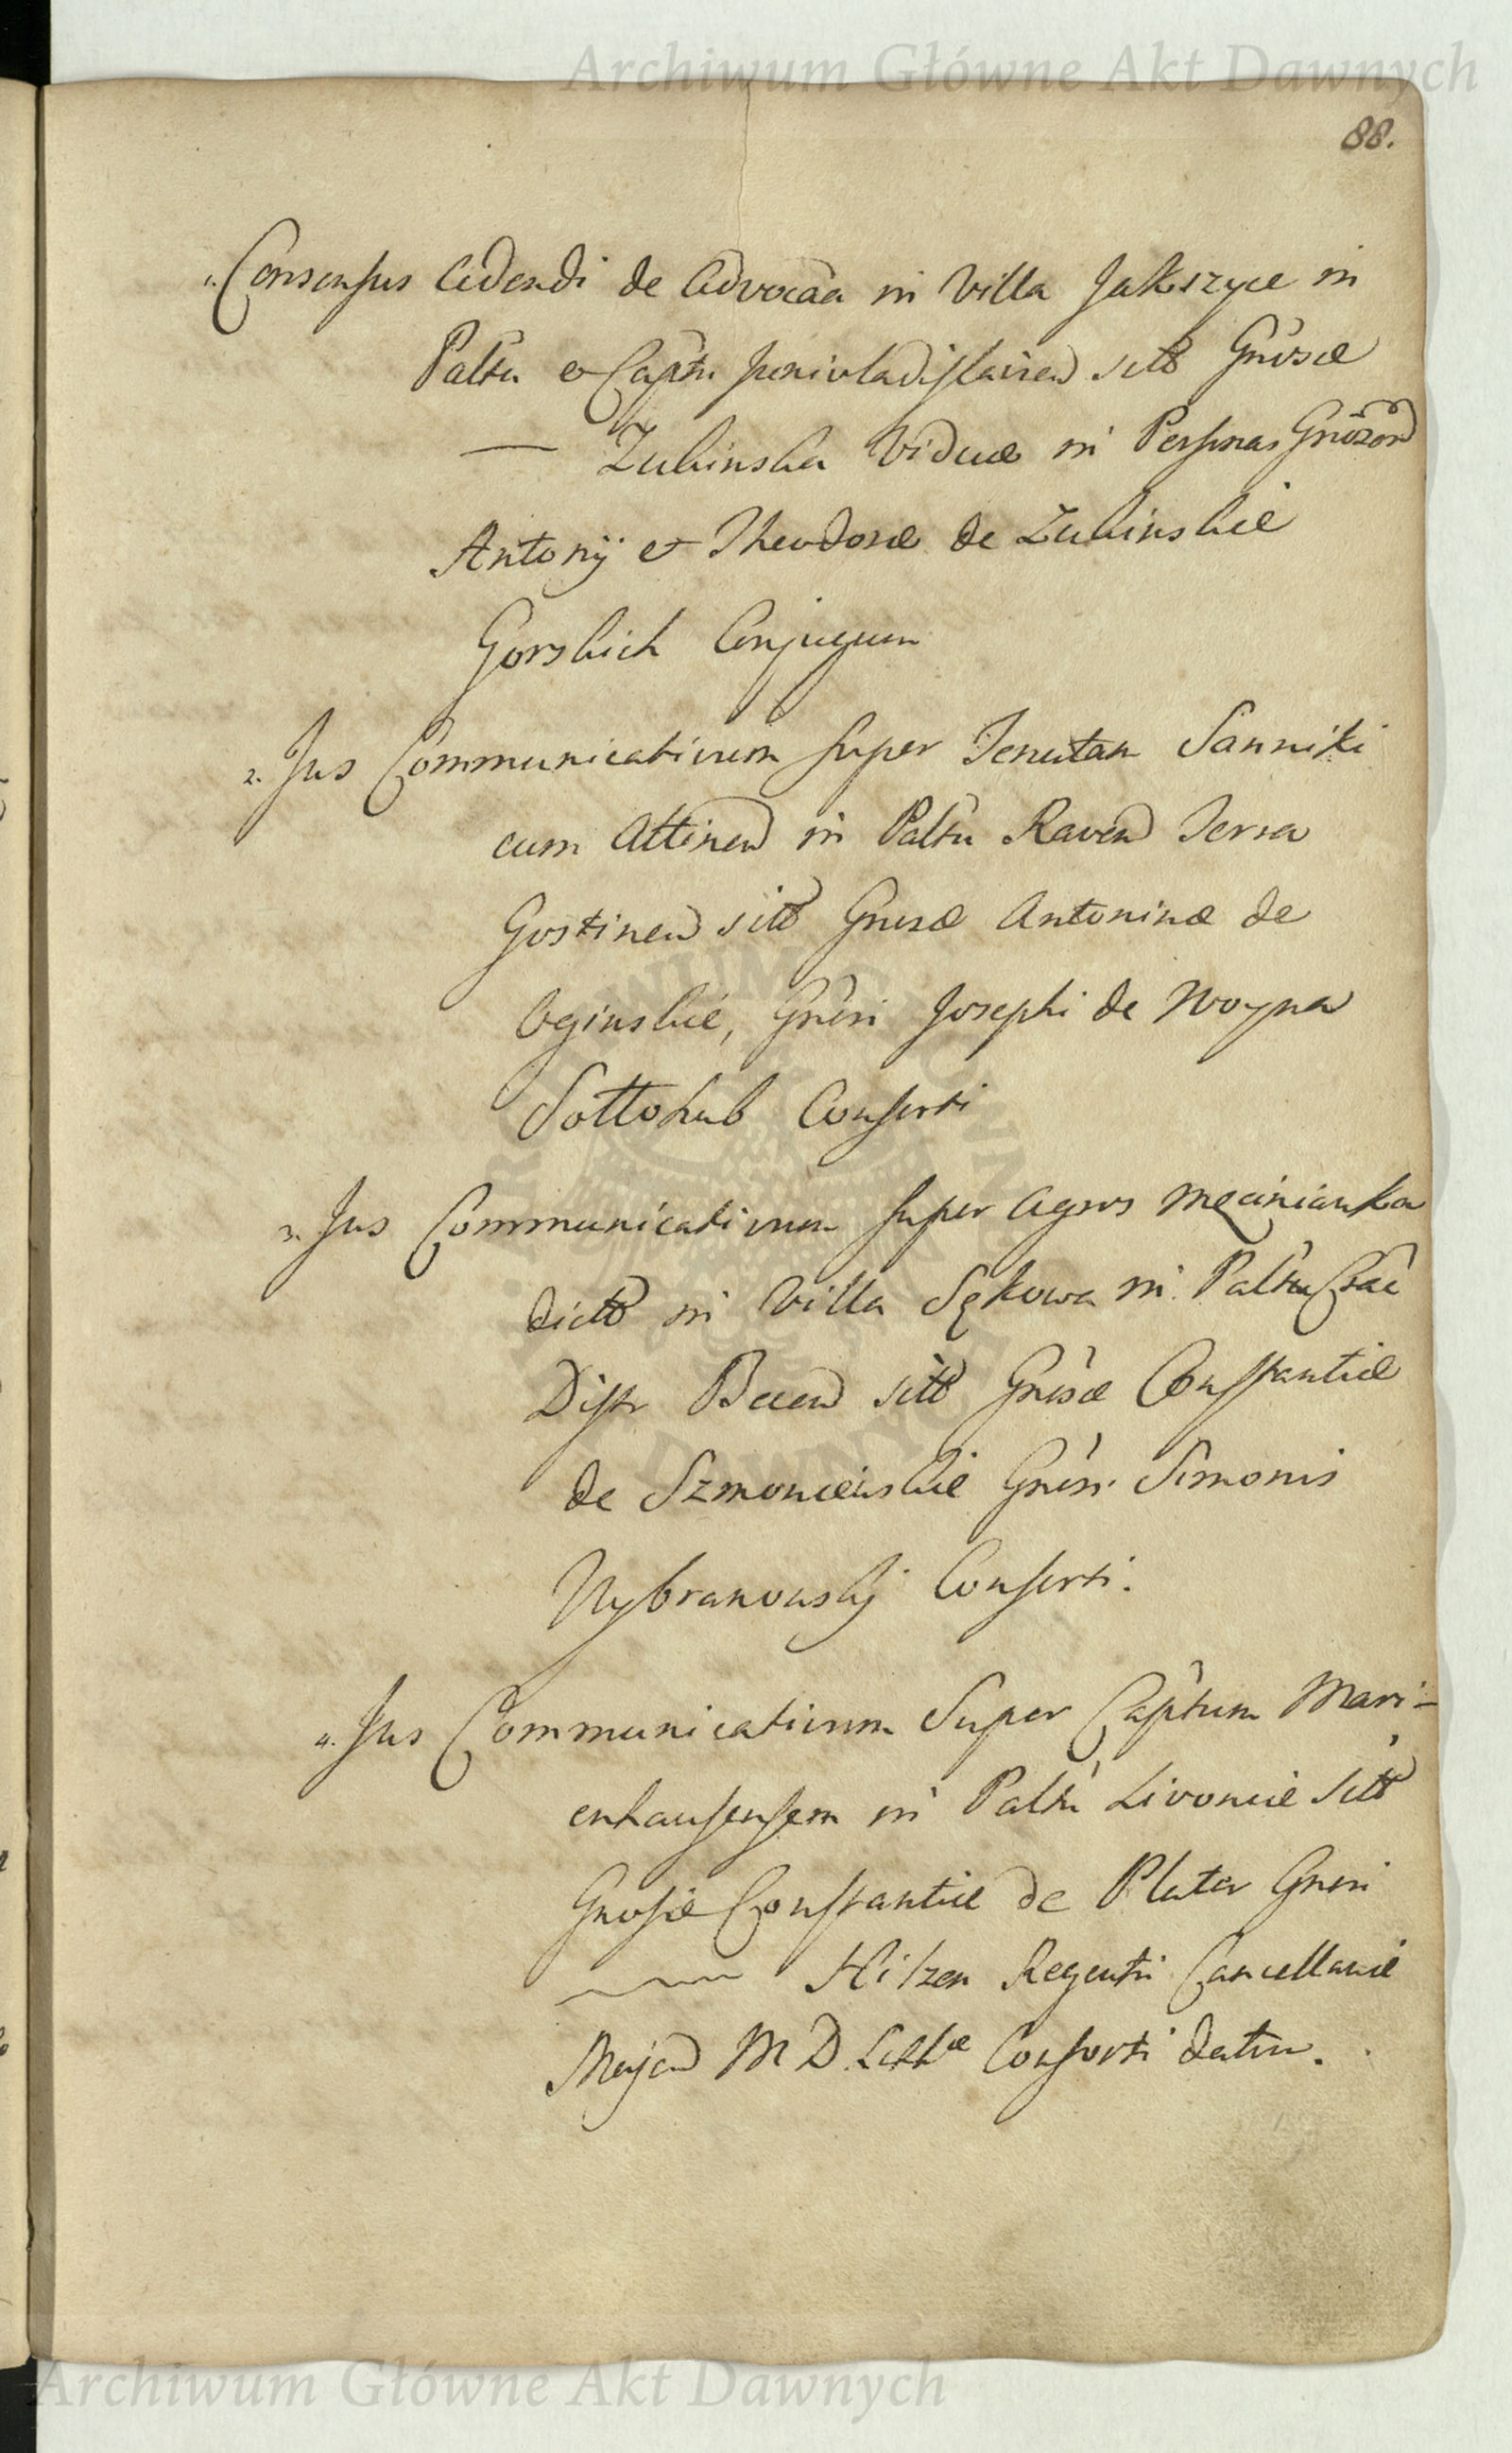 Archiwum Główne Akt Dawnych
88.
1. Consensus Cedendi de Advocãa in Villa Jakszyce in
Paltu et Captu Junivladislavien sitt Gnosæ
— Zubinska Viduæ in Personas Gnõzor
Antonij et Theodoræ de Zubinskie
Gorskich Conjugum
2. Jus Communicativum super Tenutam Sanniki
cum Attinen in Paltu Raven Terra
Gostinen sitt Gnosæ Antoninæ de
Oginskie, Gnosi Josephi de Woyna
Sottohub Consorti
3. Jus Communicativum super Agros Męcinianka
dictt in Villa Sękowa in Paltu Crac
Distr Biecen sitt Gnosæ Constantiæ
de Szmoniewskie Gnosi Simonis
Wybranowskj Consorti.
4. Jus Communicativum Super Captum Mari-
enhausensem in Paltu Livoniæ sitt
Gnosæ Constantiæ de Plater Gnosi
Hilzen Regenti Cancellariæ
Majori M D Litthæ Consorti datum.
ARCHIWUM GŁÓWNE AKT DAWNYCH
Archiwum Główne Akt Dawnych